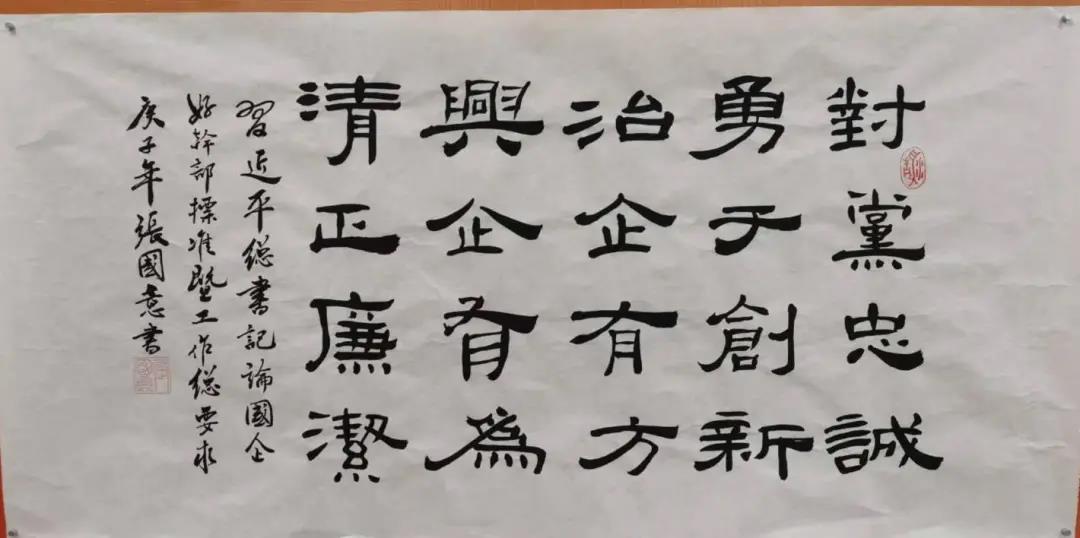 對黨忠誠
勇于創新
治企有方
興企有為
清正廉潔
習近平總書記論國企
好幹部標准暨工作總要求
庚子年張國意書